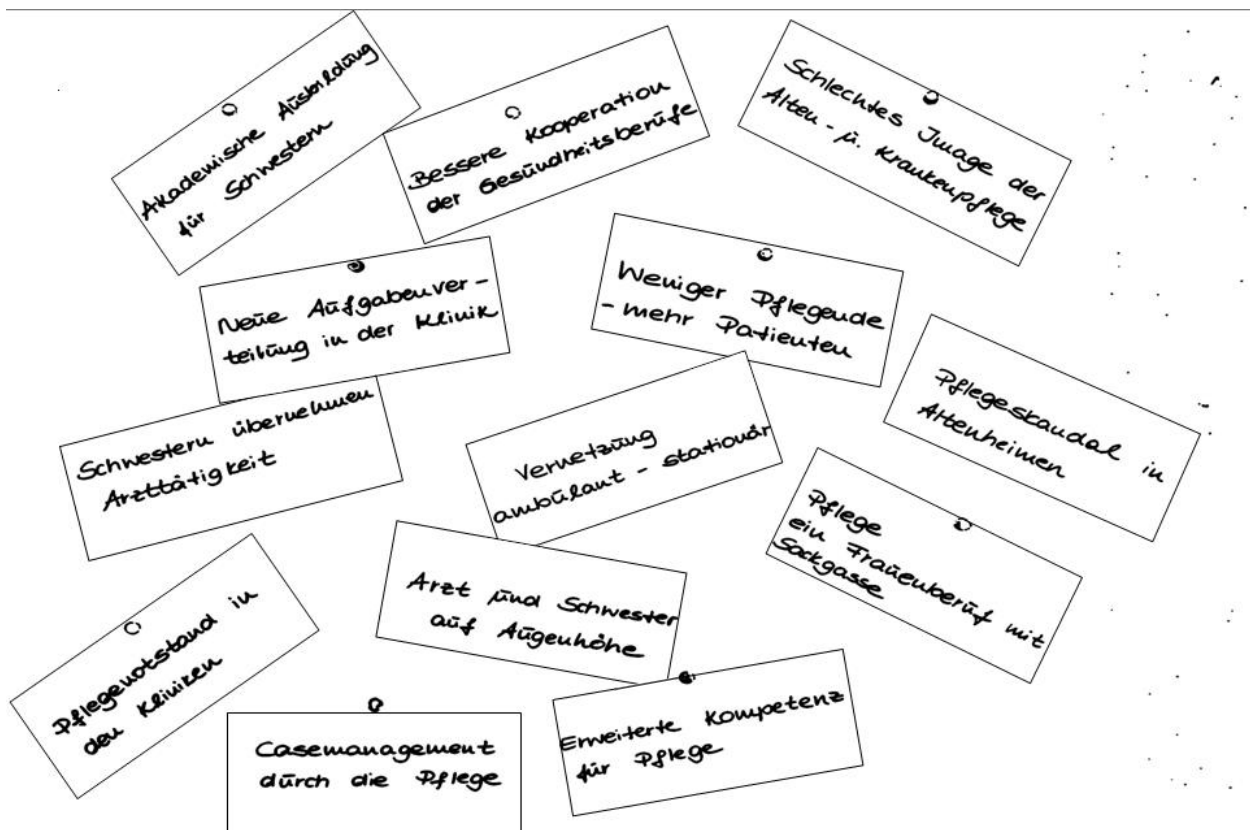 Akademische Ausbildung
für Schwestern
Bessere Kooperation
der Gesundheitsberufe
Schlechtes Image der
Alten- u. Krankenpflege
Neue Aufgabenver-
teilung in der Klinik
Weniger Pflegende
- mehr Patienten
Pflegeskandal in
Altenheimen
Schwestern übernehmen
Arzttätigkeit
Vernetzung
ambulant - stationär
Pflege
ein Frauenberuf mit
Sackgasse
Arzt und Schwester
auf Augenhöhe
Pflegenotstand in
den Kliniken
Casemanagement
durch die Pflege
Erweiterte Kompetenz
für Pflege